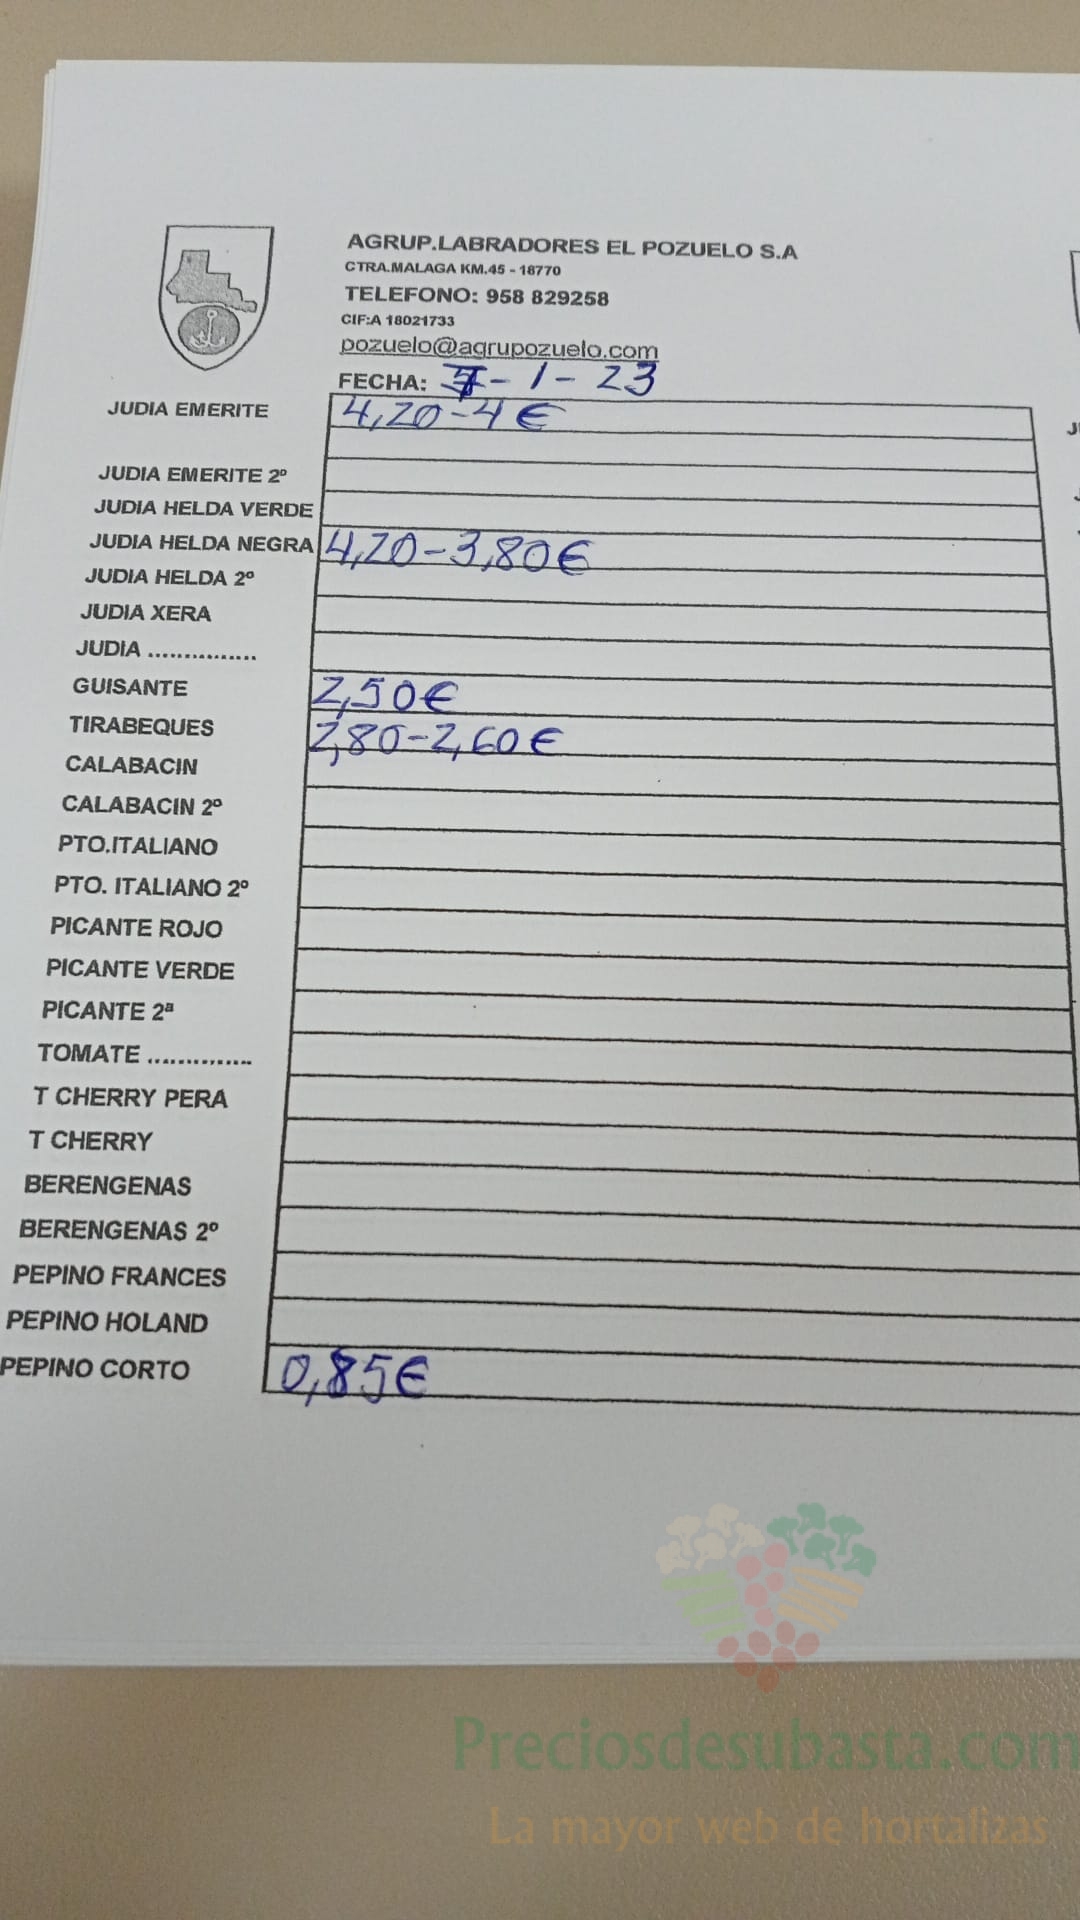 AGRUP.LABRADORES EL POZUELO S.A
CTRA.MALAGA KM.45 - 18770
TELEFONO: 958 829258
CIF:A 18021733
pozuelo@agrupozuelo.com
FECHA: 7-1-23
JUDIA EMERITE 4,20-4€
JUDIA EMERITE 2º
JUDIA HELDA VERDE
JUDIA HELDA NEGRA 4,20-3,80€
JUDIA HELDA 2º
JUDIA XERA
JUDIA ...............
GUISANTE 2,50€
TIRABEQUES 2,80-2,60€
CALABACIN
CALABACIN 2º
PTO.ITALIANO
PTO. ITALIANO 2º
PICANTE ROJO
PICANTE VERDE
PICANTE 2ª
TOMATE ..............
T CHERRY PERA
T CHERRY
BERENGENAS
BERENGENAS 2º
PEPINO FRANCES
PEPINO HOLAND
PEPINO CORTO 0,85€
Preciosdesubasta.com
La mayor web de hortalizas